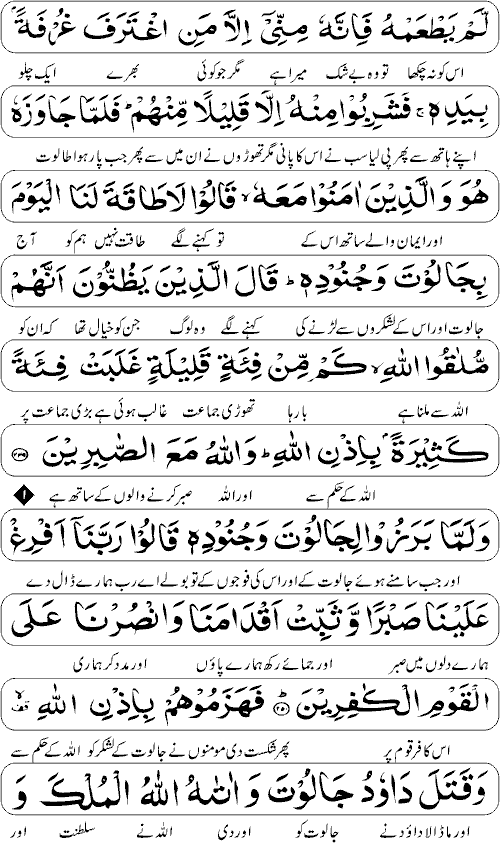 لَّمْ يَطْعَمْهُ فَاِنَّهٗ مِنِّيْٓ اِلَّا مَنِ اغْتَرَفَ غُرْفَةًۢ
اس کو نہ چکھا تو وہ بے شک میرا ہے مگر جو کوئی بھرے ایک چلو
بِيَدِهٖ ۚ فَشَرِبُوْا مِنْهُ اِلَّا قَلِيْلًا مِّنْهُمْ ۭ فَلَمَّا جَاوَزَهٗ
اپنے ہاتھ سے پھر پی لیا سب نے اس کا پانی مگر تھوڑوں نے ان میں سے پھر جب پار ہوا طالوت
هُوَ وَالَّذِيْنَ اٰمَنُوْا مَعَهٗ ۙ قَالُوْا لَا طَاقَةَ لَنَا الْيَوْمَ
اور ایمان والے ساتھ اس کے تو کہنے لگے طاقت نہیں ہم کو آج
بِجَالُوْتَ وَجُنُوْدِهٖ ۭ قَالَ الَّذِيْنَ يَظُنُّوْنَ اَنَّهُمْ
جالوت اور اس کے لشکروں سے لڑنے کی کہنے لگے وہ لوگ جن کو خیال تھا کہ ان کو
مُّلٰقُوا اللّٰهِ ۙ كَمْ مِّنْ فِئَةٍ قَلِيْلَةٍ غَلَبَتْ فِئَةً
اللہ سے ملنا ہے بارہا تھوڑی جماعت غالب ہوئی ہے بڑی جماعت پر
كَثِيْرَةًۢ بِاِذْنِ اللّٰهِ ۭ وَاللّٰهُ مَعَ الصّٰبِرِيْنَ ۲۴۹
اللہ کے حکم سے اور اللہ صبر کرنے والوں کے ساتھ ہے ۱
وَلَمَّا بَرَزُوْا لِجَالُوْتَ وَجُنُوْدِهٖ قَالُوْا رَبَّنَآ اَفْرِغْ
اور جب سامنے ہوئے جالوت کے اور اس کی فوجوں کے تو بولے اے رب ہمارے ڈال دے
عَلَيْنَا صَبْرًا وَّثَبِّتْ اَقْدَامَنَا وَانْصُرْنَا عَلَي
ہمارے دلوں میں صبر اور جمائے رکھ ہمارے پاؤں اور مدد کر ہماری
الْقَوْمِ الْكٰفِرِيْنَ ۲۵۰ فَهَزَمُوْهُمْ بِاِذْنِ اللّٰهِ
اس کافر قوم پر پھر شکست دی مومنوں نے جالوت کے لشکر کو اللہ کے حکم سے
وَقَتَلَ دَاوٗدُ جَالُوْتَ وَاٰتٰىهُ اللّٰهُ الْمُلْكَ وَ
اور مار ڈالا داؤد نے جالوت کو اور دی اللہ نے سلطنت اور